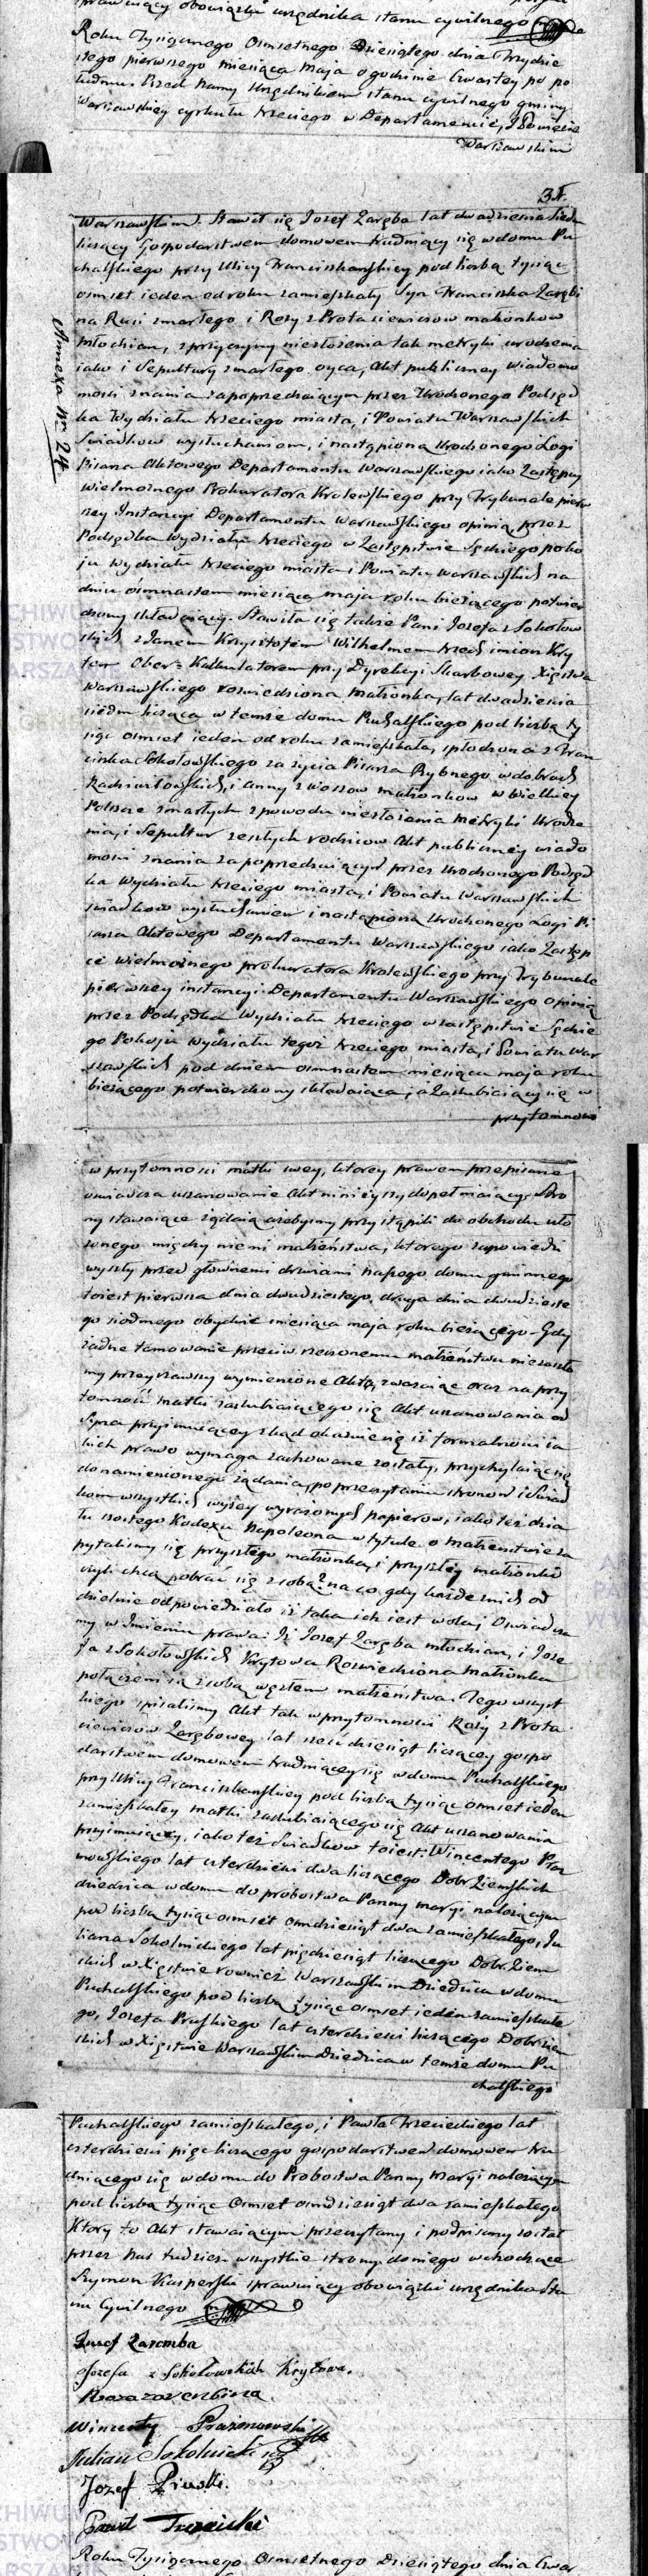 sprawuiący obowiązki urzędnika stanu cywilnego
Roku Tysiącznego Osmsetnego Dziesiątego dnia Trzydzie
stego pierwszego miesiąca Maja o godzinie czwartey po po
łudniu. Przed Nami Urzędnikiem stanu cywilnego gminy
Warszawskiey cyrkułu trzeciego w Departamencie, i Powiecie
Warszawskim
35.
Warszawskim. Stawił się Jozef Zaręba lat dwadziescia siedm
liczący Gospodarstwem domowem trudniący się w domu Pu
chalskiego przy Ulicy Franciszkanskiey pod liczbą tysiąc
osmset ieden od roku zamieszkały Syn Franciszka Zarębi
na Rusi zmarłego i Rozy z Protasiewiczow małżonkow
młodzian, z przyczyny niezłożenia tak metryki urodzenia
iako i Sepultury zmarłego oyca, Akt publiczney wiadomo
mości znania zapoprzedniczym przez Urodzonego Podsęd
ka Wydziału trzeciego miasta, i Powiatu Warszawskich
Swiadkow wysłuchaniem, i nastąpioną Urodzonego Łogi
Pisarza Aktowego Departamentu Warszawskiego iako Zastępcy
Wielmożnego Prokuratora Krolewskiego przy Trybunale pierw
szey Instancyi Departamentu Warszawskiego opinią przez
Podsędka Wydziału trzeciego w Zastępstwie Sędziego poko
ju Wydziału trzeciego miasta i Powiatu Warszawskich na
dniu osmnastem miesiąca maja roku bieżącego potwier
dzony składaiący. Stawiła się także Pani Jozefa z Sokołow
skich z Janem Krzysztofem Wilhelmem trzech imion Kry
tem Ober-Kalkulatorem przy Dyrekcyi Skarbowey Xięstwa
Warszawskiego rozwiedziona małżonka, lat dwadziescia
siedm licząca w temże domu Puchalskiego pod liczbą ty
siąc osmset ieden od roku zamieszkała, spłodzona z Fran
ciszka Sokołowskiego za życia Pisarza Rybnego w dobrach
Radziwiłłowskich, i Anny z Wossow małżonkow w Wielkiey
Polszcze zmarłych z powodu niezłożenia Metryki Urodze
nia, i Sepultur zeszłych rodzicow Akt publiczney wiado
mosci znania zapoprzedniczym przez Urodzonego Podsęd
ka Wydziału trzeciego miasta, i Powiatu Warszawskich
swiadkow wysłuchaniem i nastąpioną Urodzonego Łogi Pi
sarza Aktowego Departamentu Warszawskiego iako Zastęp
cę Wielmożnego prokuratora Krolewskiego przy Trybunale
pierwszey instancyi Departamentu Warszawskiego opinią
przez Podsędka Wydziału trzeciego w zastępstwie Sędzie
go Pokoju Wydziału tegoż trzeciego miasta, i Powiatu War
szawskich pod dniem osmnastem miesiąca maja roku
bieżącego potwierdzony składaiąca, a Zaslubiaiący się w
przytomnosci
Annexa Nr. 24
w przytomnosci matki swey, ktorey prawem przepisane
oswiadcza uszanowanie Akt ninieyszy dopełniaiący. Stro
ny stawaiące żądaią ażebysmy przystąpili do obchodu uło
żonego między niemi małżeństwa, ktorego zapowiedzi
wyszły przed głownemi drzwiami naszego domu gminnego
toiest pierwsza dnia dwudziestego, druga dnia dwudzieste
go siodmego obydwie miesiąca maja roku bieżącego. Gdy
żadne tamowanie przeciw rzeczonemu małżeństwu niezaszło
my przeyrzawszy wymienione Akta, zważaiąc oraz na przy
tomność matki zaslubiaiącego się Akt uszanowania od
Syna przyimuiącey zkąd okazuie się iż formalności ia
kich prawo wymaga zachowane zostały, przychylaiąc się
do namienionego żądania, po przeczytaniu stronom i Swiad
kom wszystkich wyżey wyrażonych papierow, iako też dzia
łu szostego Kodexu Napoleona w tytule o małżeństwie za
pytalismy się przyszłego małżonka, i przyszłey małżonki
czyli chcą pobrać się z sobą? na co gdy każde z nich od
dzielnie odpowiedziało iż taka ich iest wola; Oswiadcza
my w Imieniu prawa: Iż Jozef Zaręba młodzian, i Joze
fa z Sokołowskich Krytowa Rozwiedziona małżonka
połączeni są z sobą węzłem małżeństwa. Tego wszyst
kiego spisalismy Akt tak w przytomnosci Rozy z Prota
siewiczow Zarębowey lat sześćdziesiąt liczącey gospo
darstwem domowem trudniącey się w domu Puchalskiego
przy Ulicy Franciszkanskiey pod liczbą tysiąc osmset ieden
zamieszkałey matki zaslubiaiącego się Akt uszanowania
przyimuiącey, iako też Swiadkow toiest: Wincentego Praż
mowskiego lat czterdziesci dwa liczącego Dobr Ziemskich
dziedzica w domu do probostwa Panny Maryi należącym
pod liczbą tysiąc osmset osmdziesiąt dwa zamieszkałego, Ju
liana Sokolnickiego lat pięćdziesiąt liczącego Dobr Ziem
skich w Xięstwie rownież Warszawskim Dziedzica w domu
Puchalskiego pod liczbą tysiąc osmset ieden zamieszkałe
go, Jozefa Pruskiego lat czterdziesci liczącego Dobr ziem
skich w Xięstwie Warszawskim Dziedzica w temże domu Pu
chalskiego
Puchalskiego zamieszkałego, i Pawła Trzecieckiego lat
czterdziesci pięć liczącego gospodarstwem domowem tru
dniącego się w domu do Probostwa Panny Maryi należącym
pod liczbą tysiąc osmset osmdziesiąt dwa zamieszkałego
Ktory to Akt stawaiącym przeczytany i podpisany został
przez nas tudzież wszystkie strony do niego wchodzące
Szymon Kasperski sprawuiący obowiązki urzędnika Sta
nu Cywilnego
Jozef Zaremba
Jozefa z Sokołowskich Krytowa.
Roza Zarembina
Wincenty Prażmowski
Julian Sokolnicki
Jozef Pruski.
Paweł Trzeciecki
Roku Tysiącznego Osmsetnego Dziesiątego dnia Czwar